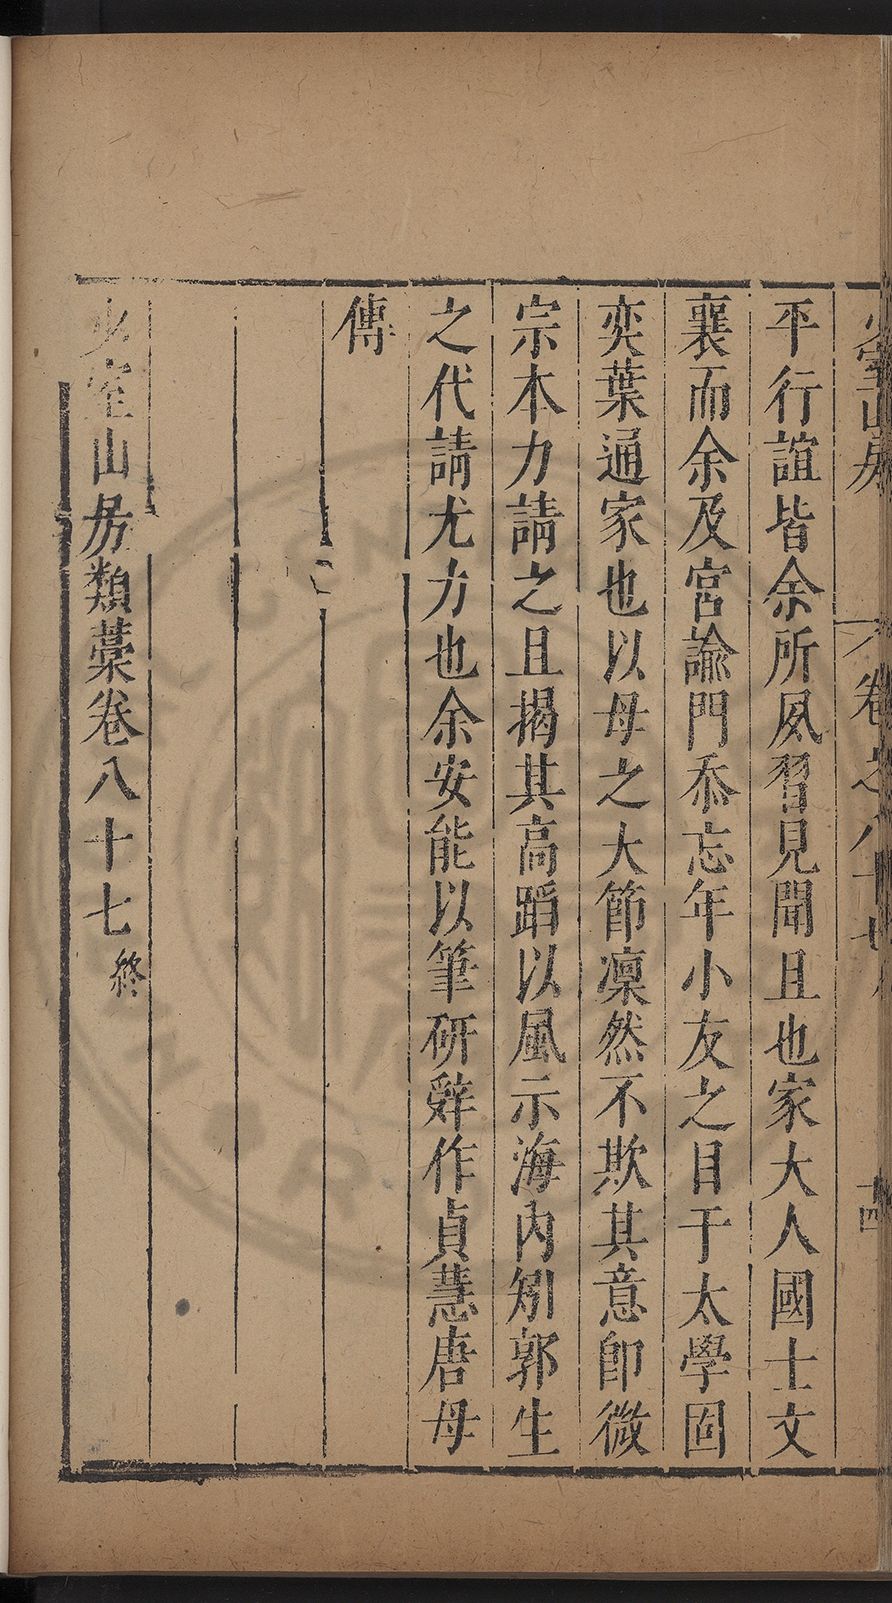 少室山房 卷之八十七 十四
平行誼皆余所夙習見聞且也家大人國士文
襄而余及宮諭門忝忘年小友之目于太學固
奕葉通家也以母之大節凜然不欺其意卽微
宗本力請之且揭其高蹈以風示海內矧郭生
之代請尤力也余安能以筆研辤作貞慧唐母
傳
少室山房類藁卷八十七終